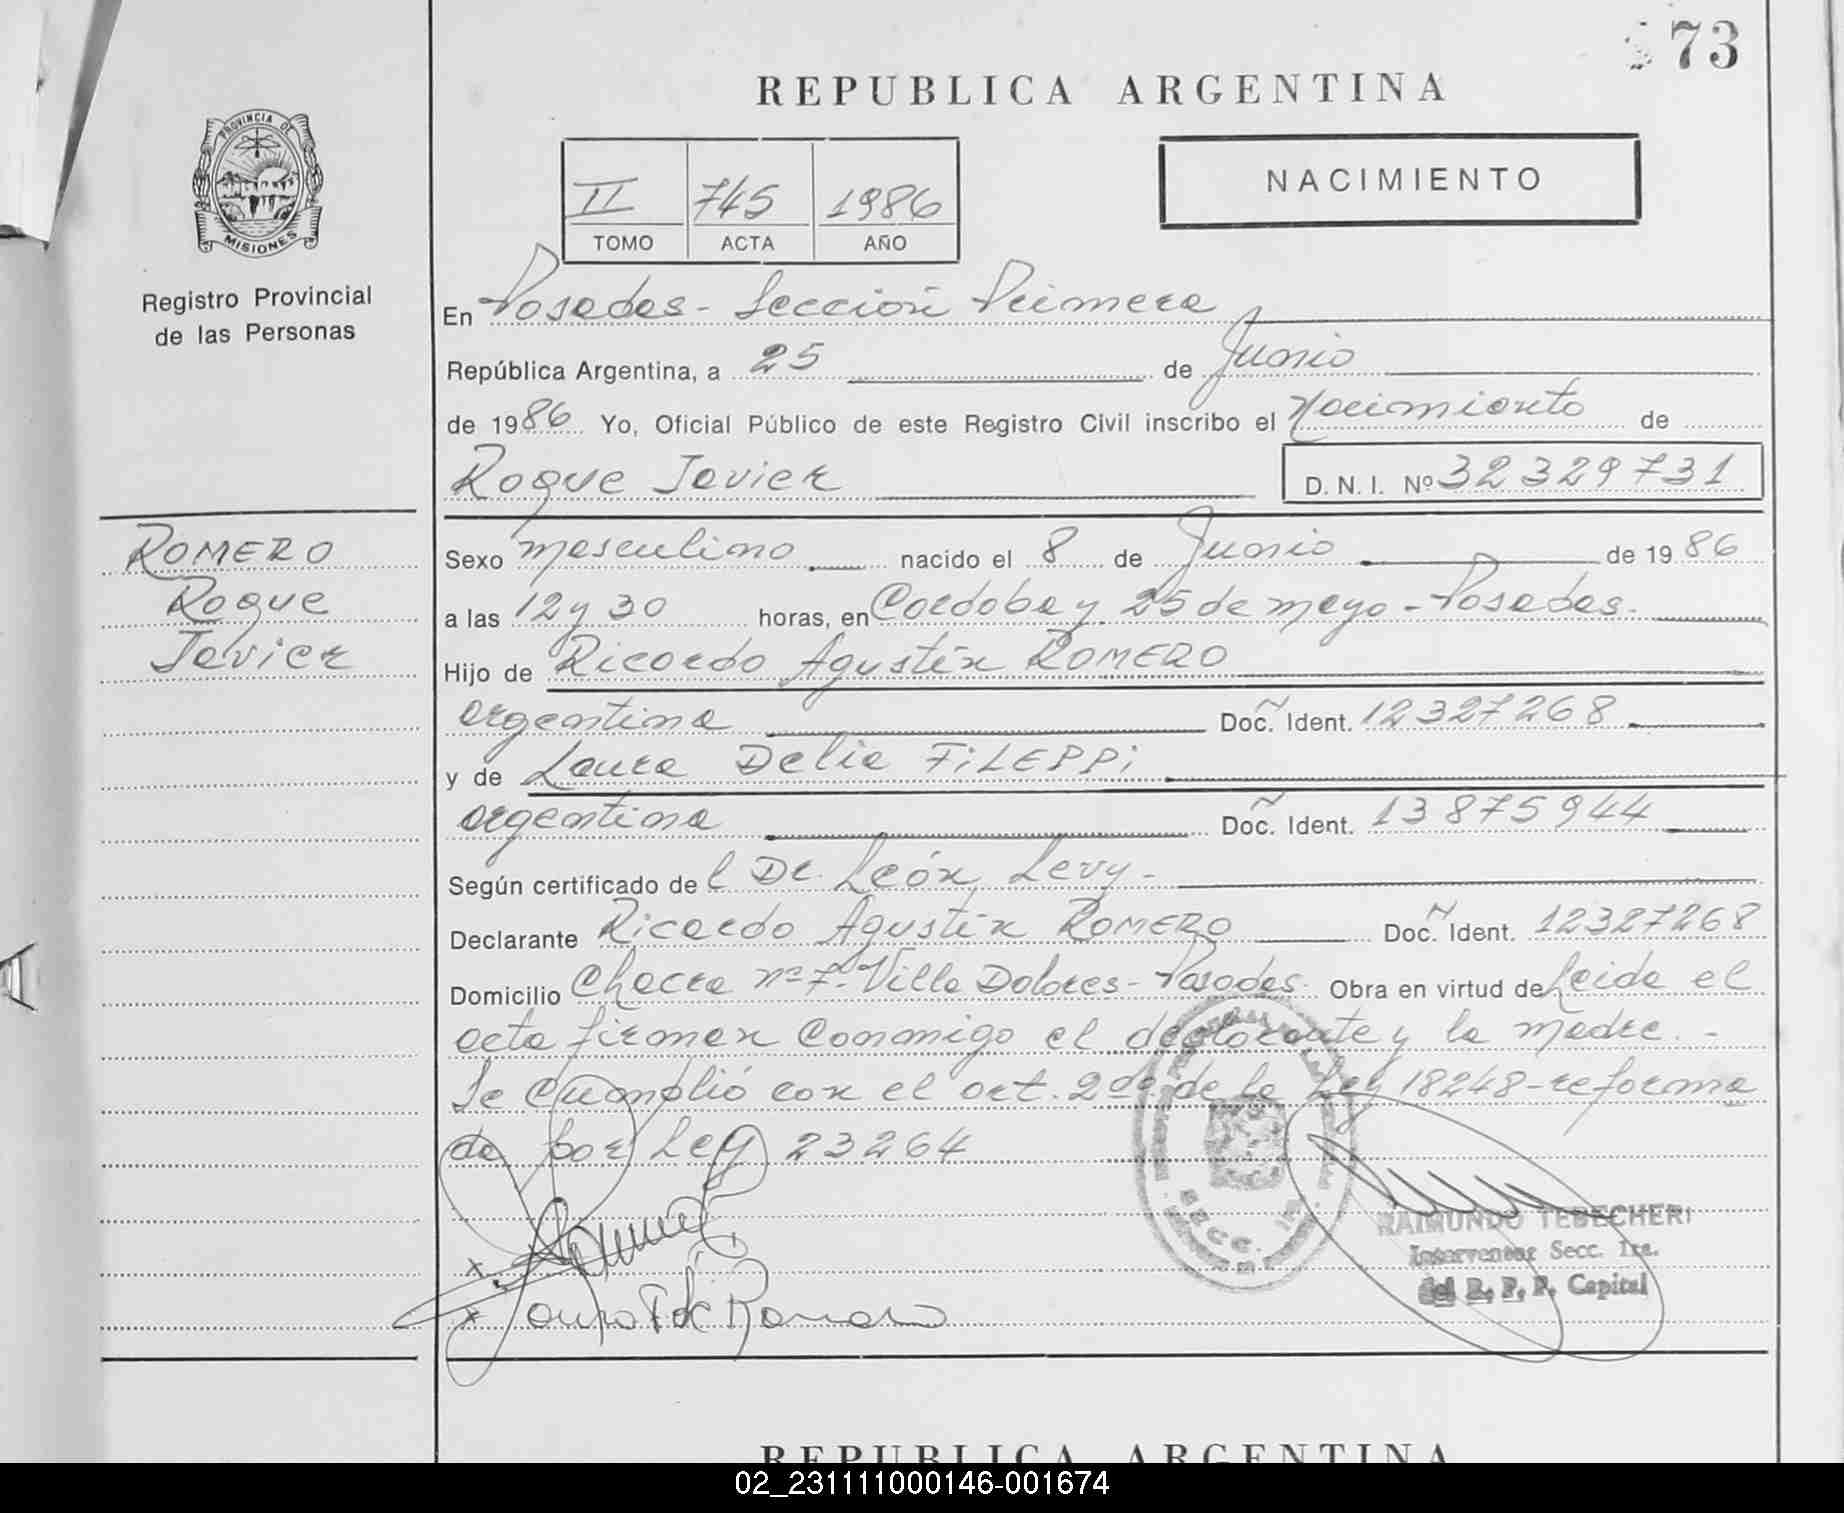 73
REPUBLICA ARGENTINA
PROVINCIA DE
MISIONES
Registro Provincial
de las Personas
II 745 1986
TOMO ACTA AÑO
NACIMIENTO
En Posadas - Sección Primera
República Argentina, a 25 de Junio
de 1986 Yo, Oficial Público de este Registro Civil inscribo el Nacimiento de
Roque Javier D. N. I. Nº 32329731
ROMERO
Roque
Javier
Sexo masculino nacido el 8 de Junio de 1986
a las 12 y 30 horas, en Cordoba y 25 de mayo - Posadas.
Hijo de Ricardo Agustín ROMERO
argentina Doc. Ident. 12327268
y de Laura Delia FiLEPPi
argentina Doc. Ident. 13875944
Según certificado de l Dr. León Levy -
Declarante Ricardo Agustín ROMERO Doc. Ident. 12327268
Domicilio Chacra nº 7 - Villa Dolores - Posadas. Obra en virtud de Leida el
acta firman conmigo el declarante y la madre. -
Se cumplió con el art. 2do. de la Ley 18248 - reforma
da por Ley 23264
SECC. 1a
RAIMUNDO TEBECHERI
Interventor Secc. 1ra.
del R. P. P. Capital
x
x Laura F de Romero
REPUBLICA ARGENTINA
02_231111000146-001674